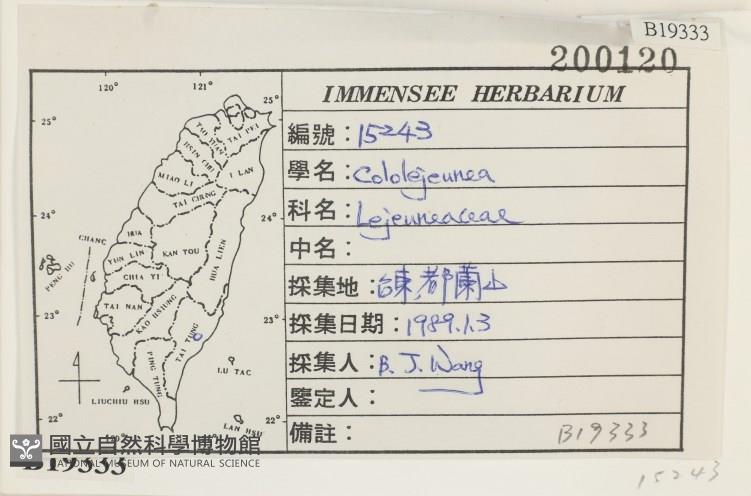 B19333
200120
IMMENSEE HERBARIUM
編號：15243
學名：Cololejeunea
科名：Lejeuneaceae
中名：
採集地：台東,都蘭山
採集日期：1989.1.3
採集人：B. J. Wang
鑒定人：
備註：
B19333
15243
120°
121°
25°
25°
24°
24°
23°
23°
22°
22°
TAI PEI
TAO YUAN
HSIN CHU
I LAN
MIAO LI
TAI CHUNG
CHANG
HUA
YUN LIN
KAN TOU
HUA LIEN
PENG HU
CHIA YI
TAI NAN
KAO HSIUNG
TAI TUNG
PING TUNG
LU TAC
LIUCHIU HSU
LAN HSU
國立自然科學博物館
NATIONAL MUSEUM OF NATURAL SCIENCE
B19333